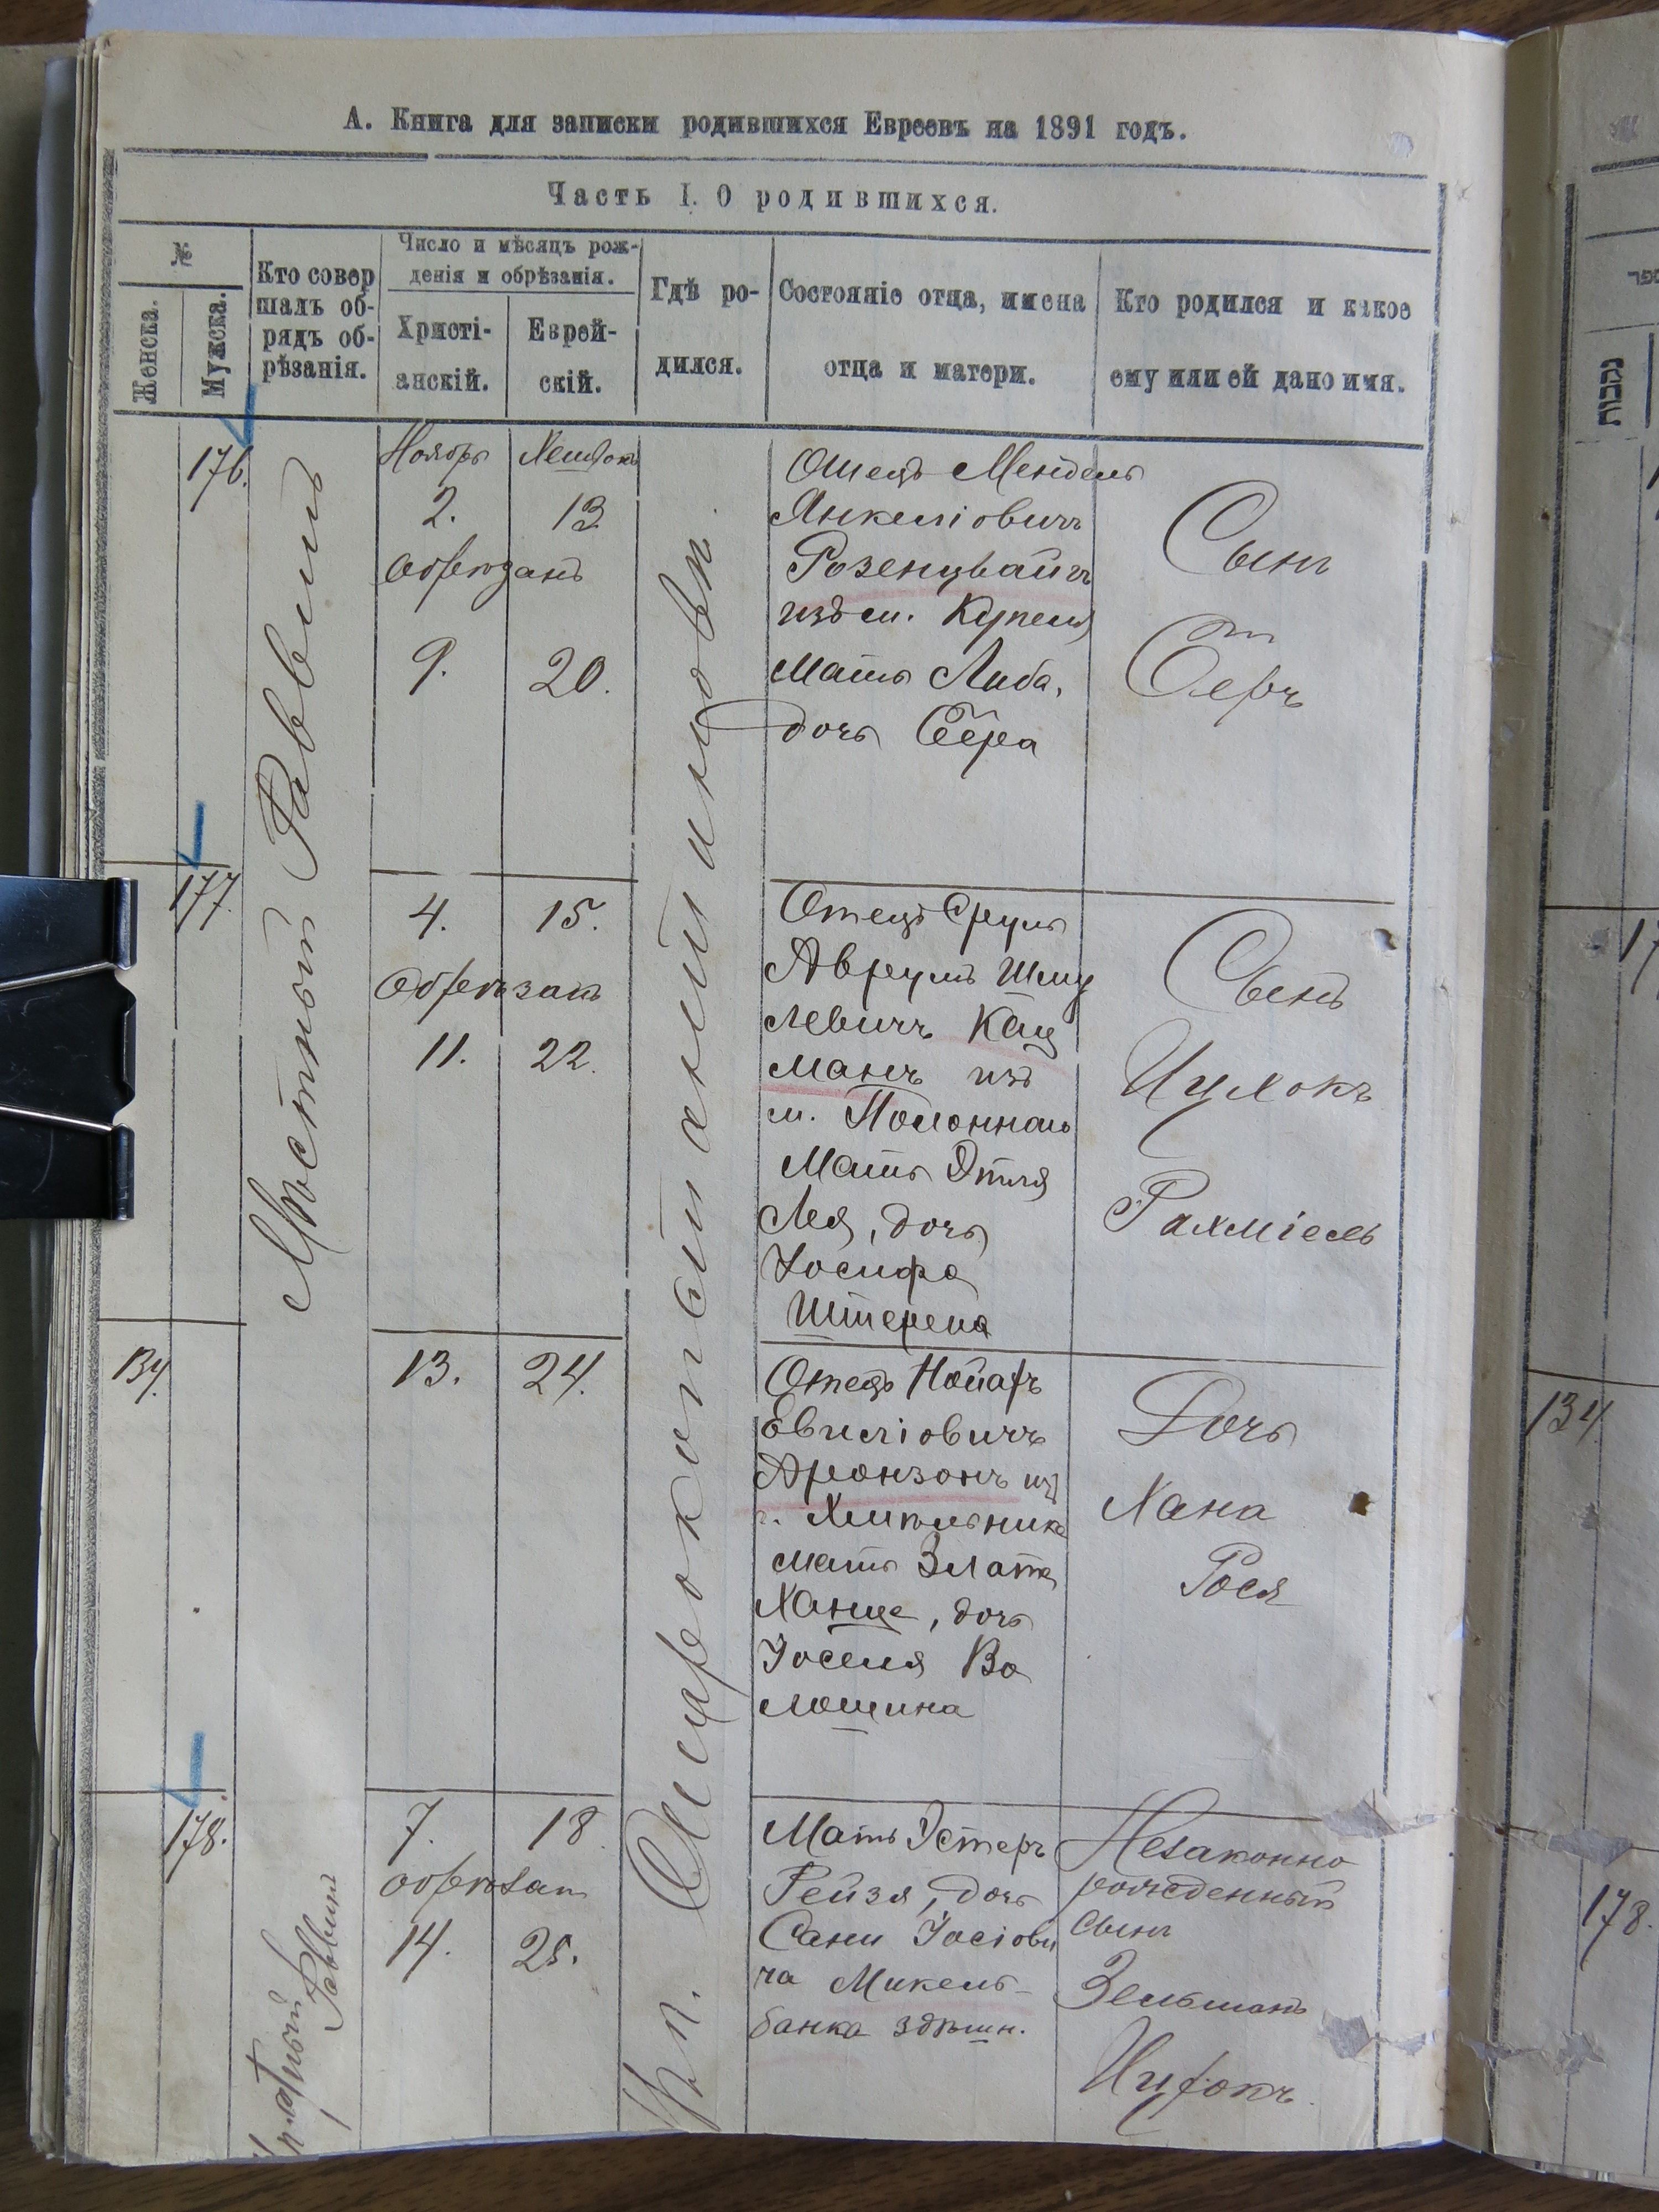 А. Книга для записки родившихся Евреевъ на 1891 годъ.
Часть I. О родившихся.
№
Женска.
Мужска.
Кто совер
шалъ об-
рядъ об-
рѣзанія.
Число и мѣсяцъ рож-
денія и обрѣзанія.
Христі-
анскій.
Еврей-
скій.
Гдѣ ро-
дился.
Состояніе отца, имена
отца и матери.
Кто родился и какое
ему или ей дано имя.
Мѣстный Раввинъ
176.
Ноябрь
Хешвонъ
2.
13
обрѣзанъ
9.
20.
Отецъ Мендель
Янкеліовичъ
Розенцвайгъ
изъ м. Купеля
Мать Либа,
дочь Бера
Сынъ
Беръ
177.
4.
15.
Обрѣзанъ
11.
22.
Отецъ Сруль
Аврумъ Шму
левичъ Кац
манъ изъ
м. Полоннаго
Мать Этля
Лея, дочь
Іосифа
Штерена
Сынъ
Ицхокъ
Рахміель
134.
13.
24.
Отецъ
Аронзонъ изъ
г. Хмѣльника
Мать Злата
дочь
Іоселя Во
лошина
Дочь
Хана
Рося
178.
7.
18.
обрѣзан
14.
25.
Мать Эстеръ
Рейзя, дочь
Сани Іосіови
ча Микель-
банка здѣшн.
Незаконно
рожденный
сынъ
Зельманъ
Ицхокъ
Раввинъ
134.
178.